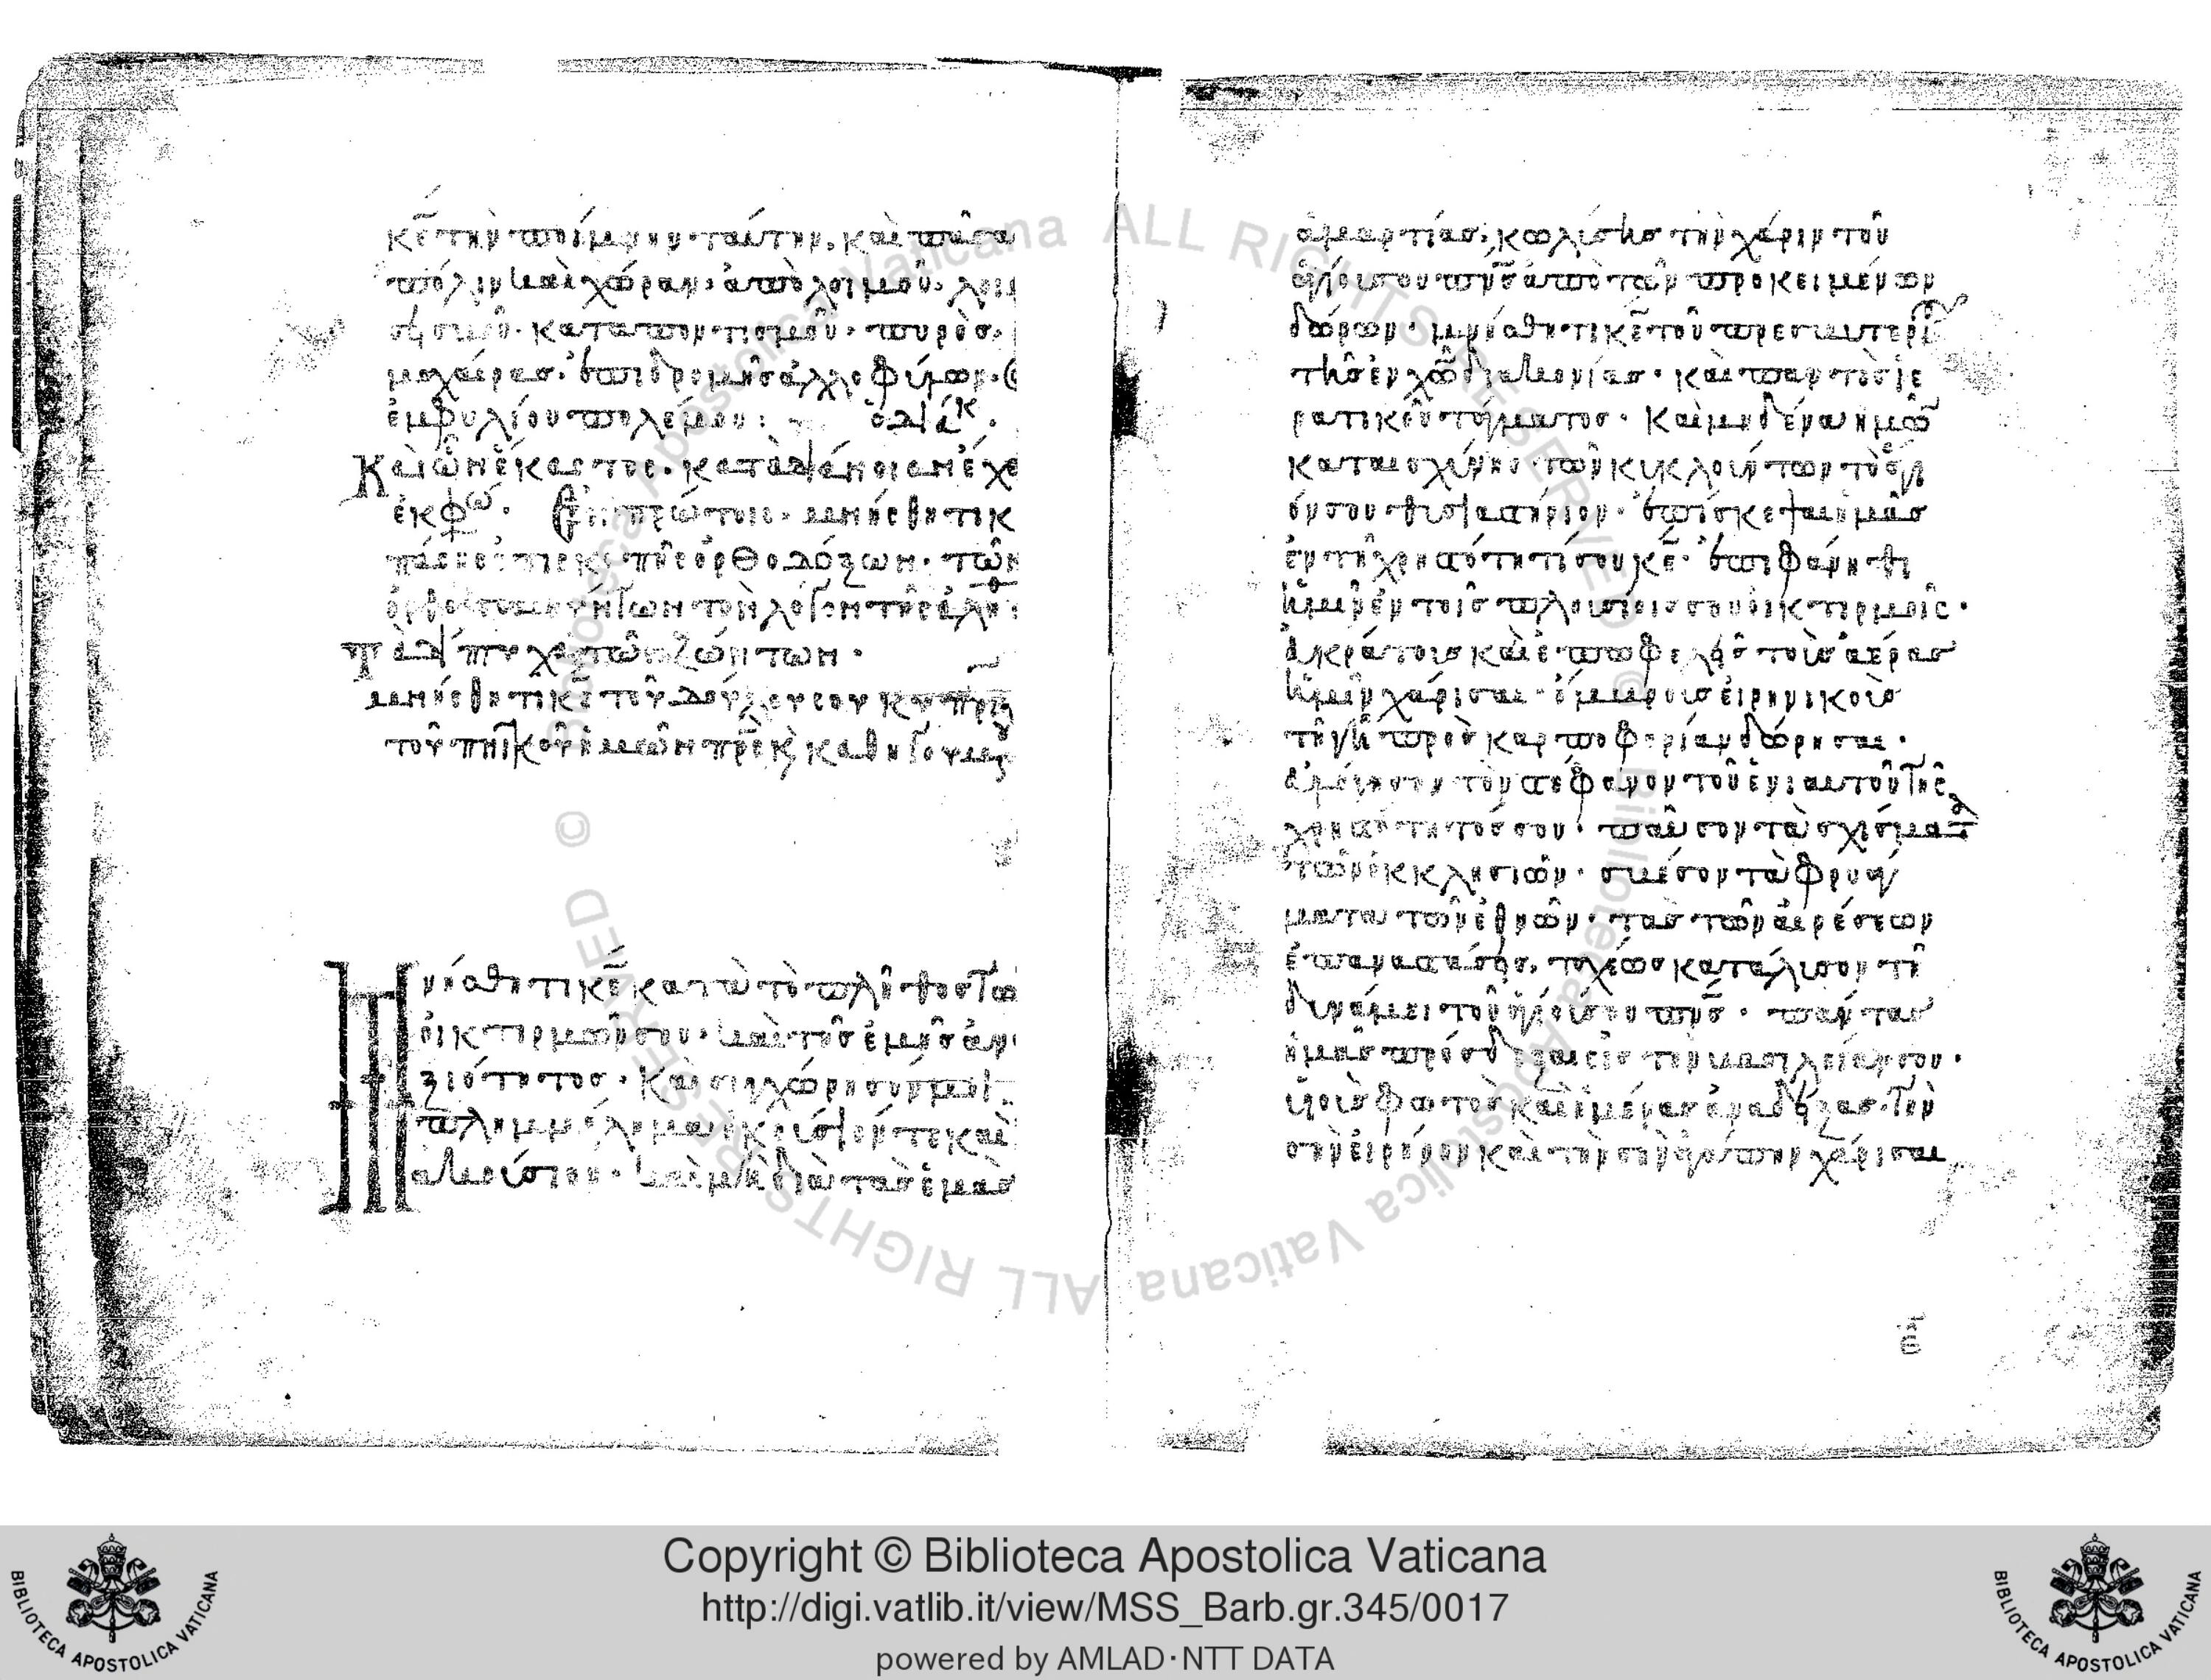 κε την ποίμνην ταύτην, και πάσα
πόλιν και χώραν· απο λοιμού· λοι
σεισμού· καταποντισμού· πυρός·
μαχαίρας· επιδρομής αλλοφύλων·
εμφυλίου πολέμου: ο διάκ
Και ὧν ἕκαστος κατὰ διάνοιαν ἔχε
ἐκφώ· Ἐν πρώτοις μνήσθητι κ
πάσης ἐπισκοπῆς ὀρθοδόξων· τῶν
ὀρθοτομούντων τὸν λόγον τῆς ἀλη
τὰ δίπτυχα τῶν ζώντων·
μνήσθητι κε τοῦ δούλου σου
τοῦ πνικοῦ ἡμῶν πρς κ καθηγουμ
Μνήσθητι κε κατὰ τὸ πλῆθος τῶ
οἰκτιρμῶν σου· καὶ τῆς ἐμῆς ἀν
ξιότητος· καὶ συγχώρησόν μοι
πλημμέλημα ἑκούσιόν τε καὶ
ἀκούσιον· καὶ μὴ διὰ τὰς ἐμὰς
ἁμαρτίας· κωλύσης τὴν χάριν τοῦ
ἁγίου σου πνς ἀπὸ τῶν προκειμένων
δώρων· μνήσθητι κε τοῦ πρεσβυτερί
τῆς ἐν χω διακονίας· καὶ παντὸς ἱε
ρατικοῦ τάγματος· καὶ μηδένα ἡμῶ
καταισχύνης τῶν κυκλούντων τὸ ἅγι
όν σου θυσιαστήριον· ἐπίσκεψαι ἡμᾶς
ἐν τῆ χρηστότητί σου κε· ἐπιφάνηθι
ἡμῖν ἐν τοῖς πλουσίοις σου οἰκτιρμοῖς·
εὐκράτους καὶ ἐπωφελεῖς τοὺς ἀέρας
ἡμῖν χάρισαι· ὄμβρους εἰρηνικοὺς
τῆ γῆ πρὸς καρποφορίαν δώρησαι·
εὐλόγησον τὸν στέφανον τοῦ ἐνιαυτοῦ τῆς
χρηστότητός σου· παῦσον τὰ σχίσματ
τῶν ἐκκλησιῶν· σβέσον τὰ φρυά
ματα τῶν ἐθνῶν· τὰς τῶν αἱρέσεων
ἐπαναστάσεις, ταχέως κατάλυσον τῆ
δυνάμει τοῦ ἁγίου σου πνς· πάντας
ἡμᾶς πρόσδεξαι εἰς τὴν βασιλείαν σου·
υἱοὺς φωτὸς καὶ ἡμέρας ἀναδείξας· τὴν
σὴν εἰρήνην καὶ τὴν σὴν ἀγάπην χάρισαι
Copyright © Biblioteca Apostolica Vaticana
http://digi.vatlib.it/view/MSS_Barb.gr.345/0017
powered by AMLAD·NTT DATA
BIBLIOTECA APOSTOLICA VATICANA
BIBLIOTECA APOSTOLICA VATICANA